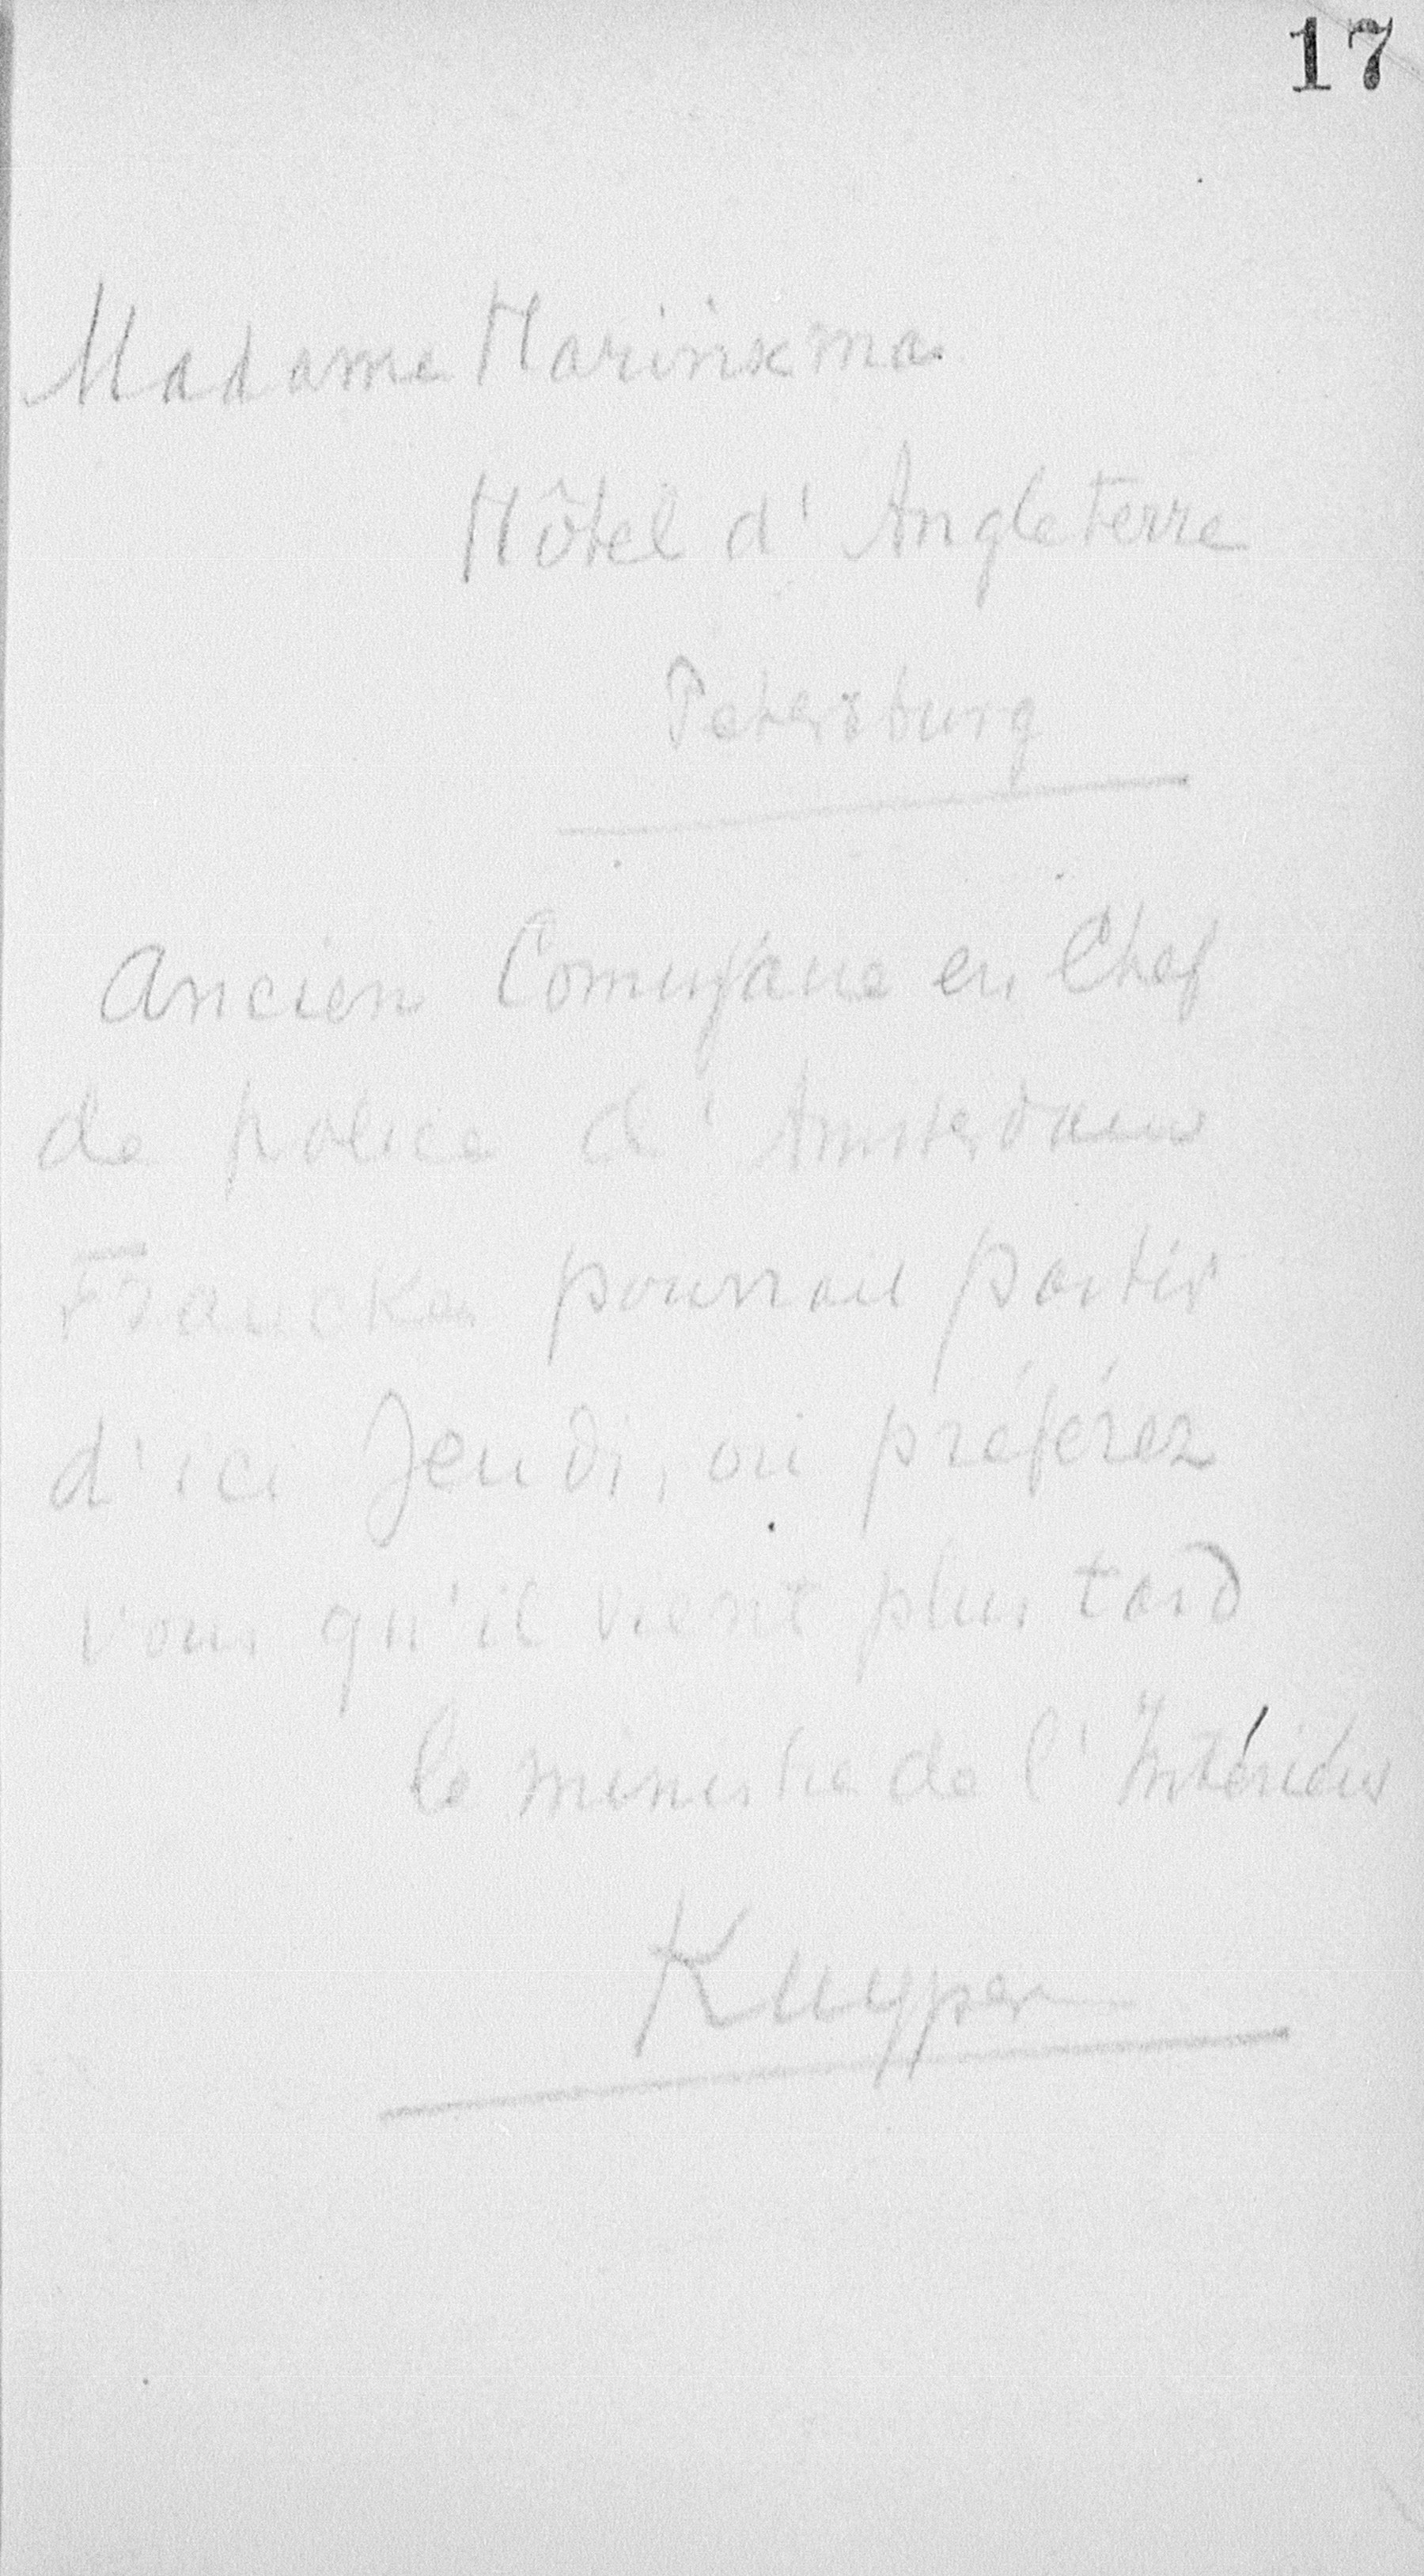 17
Madame Harinxma
Hôtel d'Angleterre
Petersburg
Ancien Commissaire en Chef
de police d'Amsterdam
Francken pourrait partir
d'ici Jeudi, ou préférez
vous qu'il vient plus tard
le ministre de l'Intérieur
Kuyper